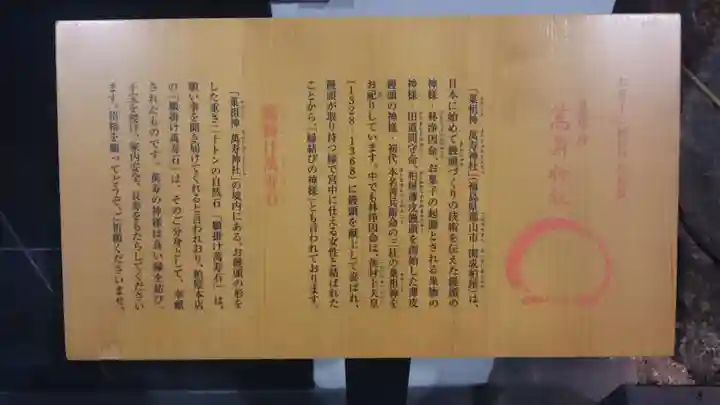 菓祖神
萬寿神社
「菓祖神 萬寿神社」(福島県郡山市 開成柏屋)は、
日本に始めて饅頭づくりの技術を伝えた饅頭の
神様・林浄因命、お菓子の起源とされる菓物の
神様・田道間守命、柏屋薄皮饅頭を開始した薄皮
饅頭の神様・初代 本名善兵衛命の三柱の菓祖神を
お祀りしています。中でも林浄因命は、後村上天皇
(1328-1368)に饅頭を献上して喜ばれ、
饅頭が取り持つ縁で宮中に仕える女性と結ばれた
ことから、「縁結びの神様」とも言われております。
願掛け萬寿石
「菓祖神 萬寿神社」の境内にある、お饅頭の形を
した重さ二十トンの自然石「願掛け萬寿石」は、
願い事を聞き届けてくれると言われており、柏屋本店
の「願掛け萬寿石」は、そのご分身として、奉献
されたものです。萬寿の神様は良い縁を結び、
子宝を授け、家内安全、長寿をもたらしてください
ます。招福を願ってどうぞ、ご祈願くださいませ。